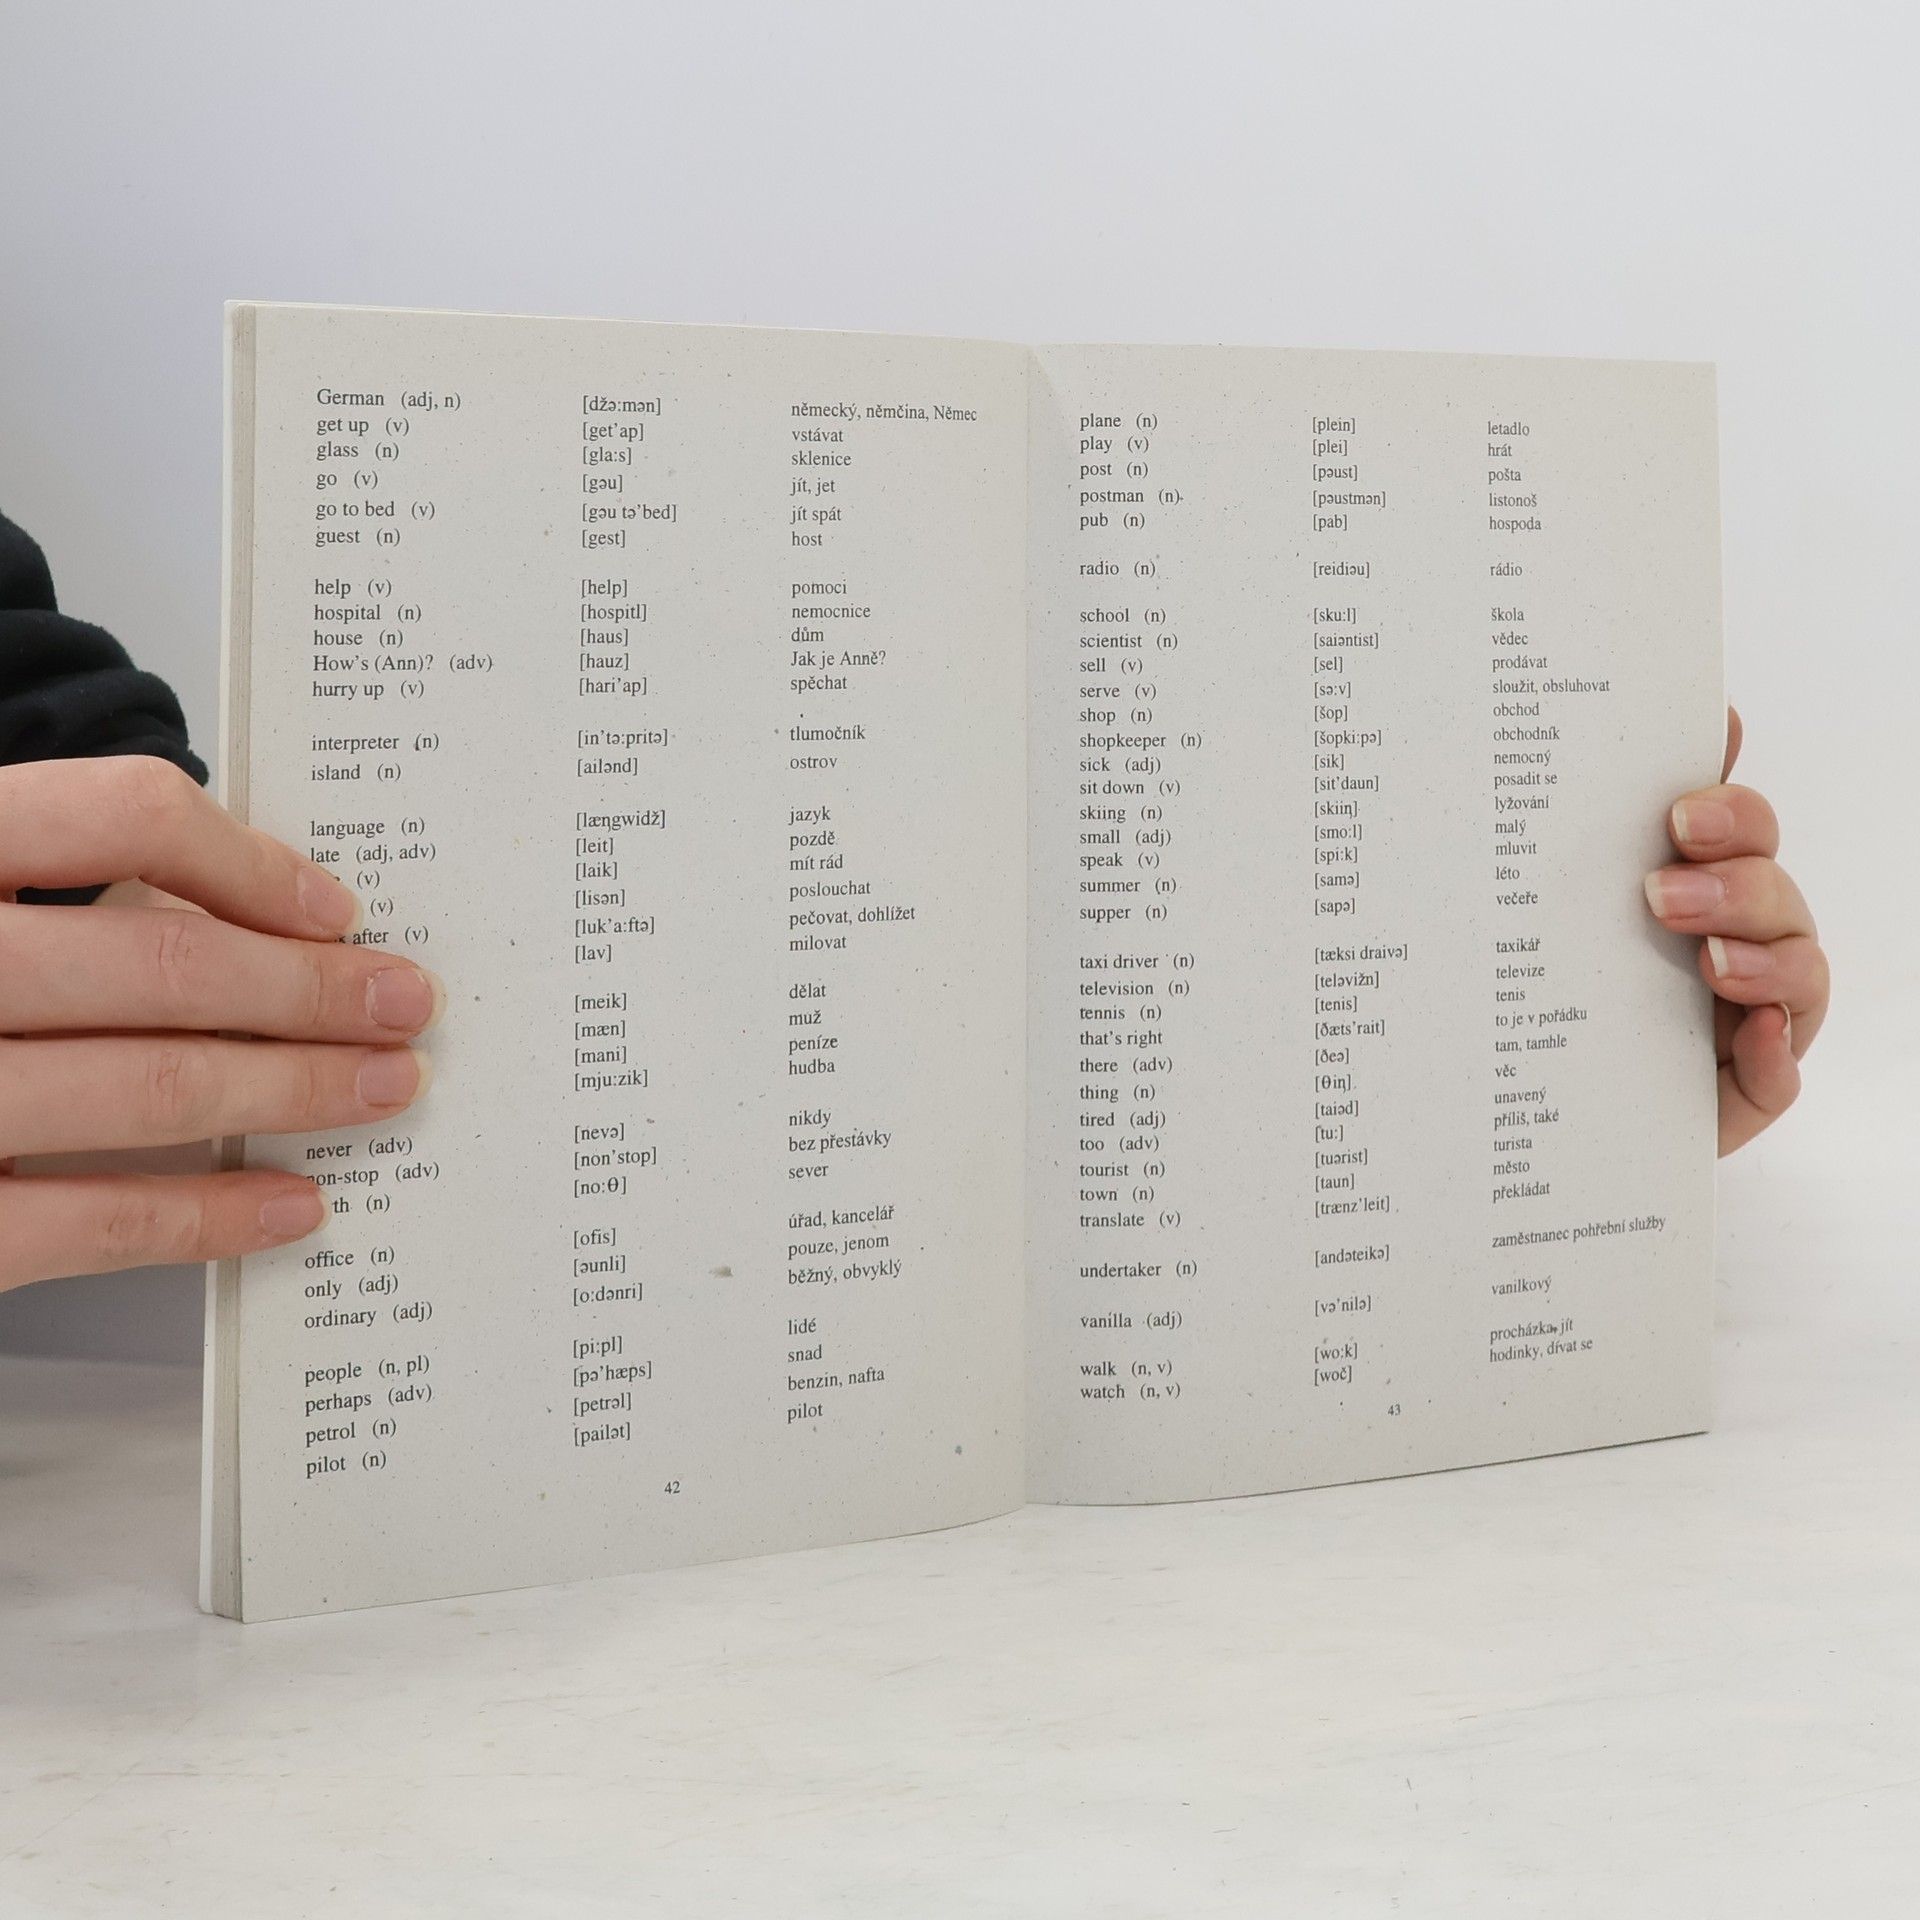 German (adj, n) [džə:mən] německý, němčina, Němec
get up (v) [get'ap] vstávat
glass (n) [gla:s] sklenice
go (v) [gəu] jít, jet
go to bed (v) [gəu tə'bed] jít spát
guest (n) [gest] host
help (v) [help] pomoci
hospital (n) [hospitl] nemocnice
house (n) [haus] dům
How's (Ann)? (adv) [hauz] Jak je Anně?
hurry up (v) [hari'ap] spěchat
interpreter (n) [in'tə:pritə] tlumočník
island (n) [ailənd] ostrov
language (n) [læŋgwidž] jazyk
late (adj, adv) [leit] pozdě
(v) [laik] mít rád
(v) [lisən] poslouchat
after (v) [luk'a:ftə] pečovat, dohlížet
[lav] milovat
[meik] dělat
[mæn] muž
[mani] peníze
[mju:zik] hudba
never (adv) [nevə] nikdy
non-stop (adv) [non'stop] bez přestávky
th (n) [no:θ] sever
office (n) [ofis] úřad, kancelář
only (adj) [əunli] pouze, jenom
ordinary (adj) [o:dənri] běžný, obvyklý
people (n, pl) [pi:pl] lidé
perhaps (adv) [pə'hæps] snad
petrol (n) [petrəl] benzin, nafta
pilot (n) [pailət] pilot
42
plane (n) [plein] letadlo
play (v) [plei] hrát
post (n) [pəust] pošta
postman (n) [pəustmən] listonoš
pub (n) [pab] hospoda
radio (n) [reidiəu] rádio
school (n) [sku:l] škola
scientist (n) [saiəntist] vědec
sell (v) [sel] prodávat
serve (v) [sə:v] sloužit, obsluhovat
shop (n) [šop] obchod
shopkeeper (n) [šopki:pə] obchodník
sick (adj) [sik] nemocný
sit down (v) [sit'daun] posadit se
skiing (n) [skiiŋ] lyžování
small (adj) [smo:l] malý
speak (v) [spi:k] mluvit
summer (n) [samə] léto
supper (n) [sapə] večeře
taxi driver (n) [tæksi draivə] taxikář
television (n) [teləvižn] televize
tennis (n) [tenis] tenis
that's right [ðæts'rait] to je v pořádku
there (adv) [ðeə] tam, tamhle
thing (n) [θiŋ] věc
tired (adj) [taiəd] unavený
too (adv) [tu:] příliš, také
tourist (n) [tuərist] turista
town (n) [taun] město
translate (v) [trænz'leit] překládat
undertaker (n) [andəteikə] zaměstnanec pohřební služby
vanilla (adj) [və'nilə] vanilkový
walk (n, v) [wo:k] procházka, jít
watch (n, v) [woč] hodinky, dívat se
43